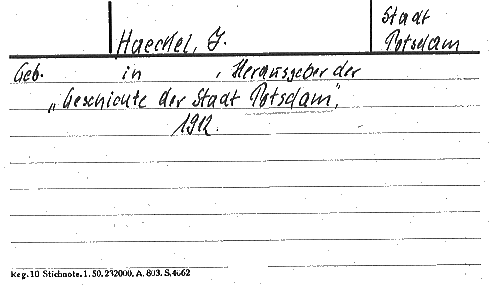 Haeckel, J.
Stadt
Potsdam
Geb. in , Herausgeber der
„Geschichte der Stadt Potsdam",
1912.
Reg. 10 Stichnote. 1. 50. 232000. A. 803. S. 4662